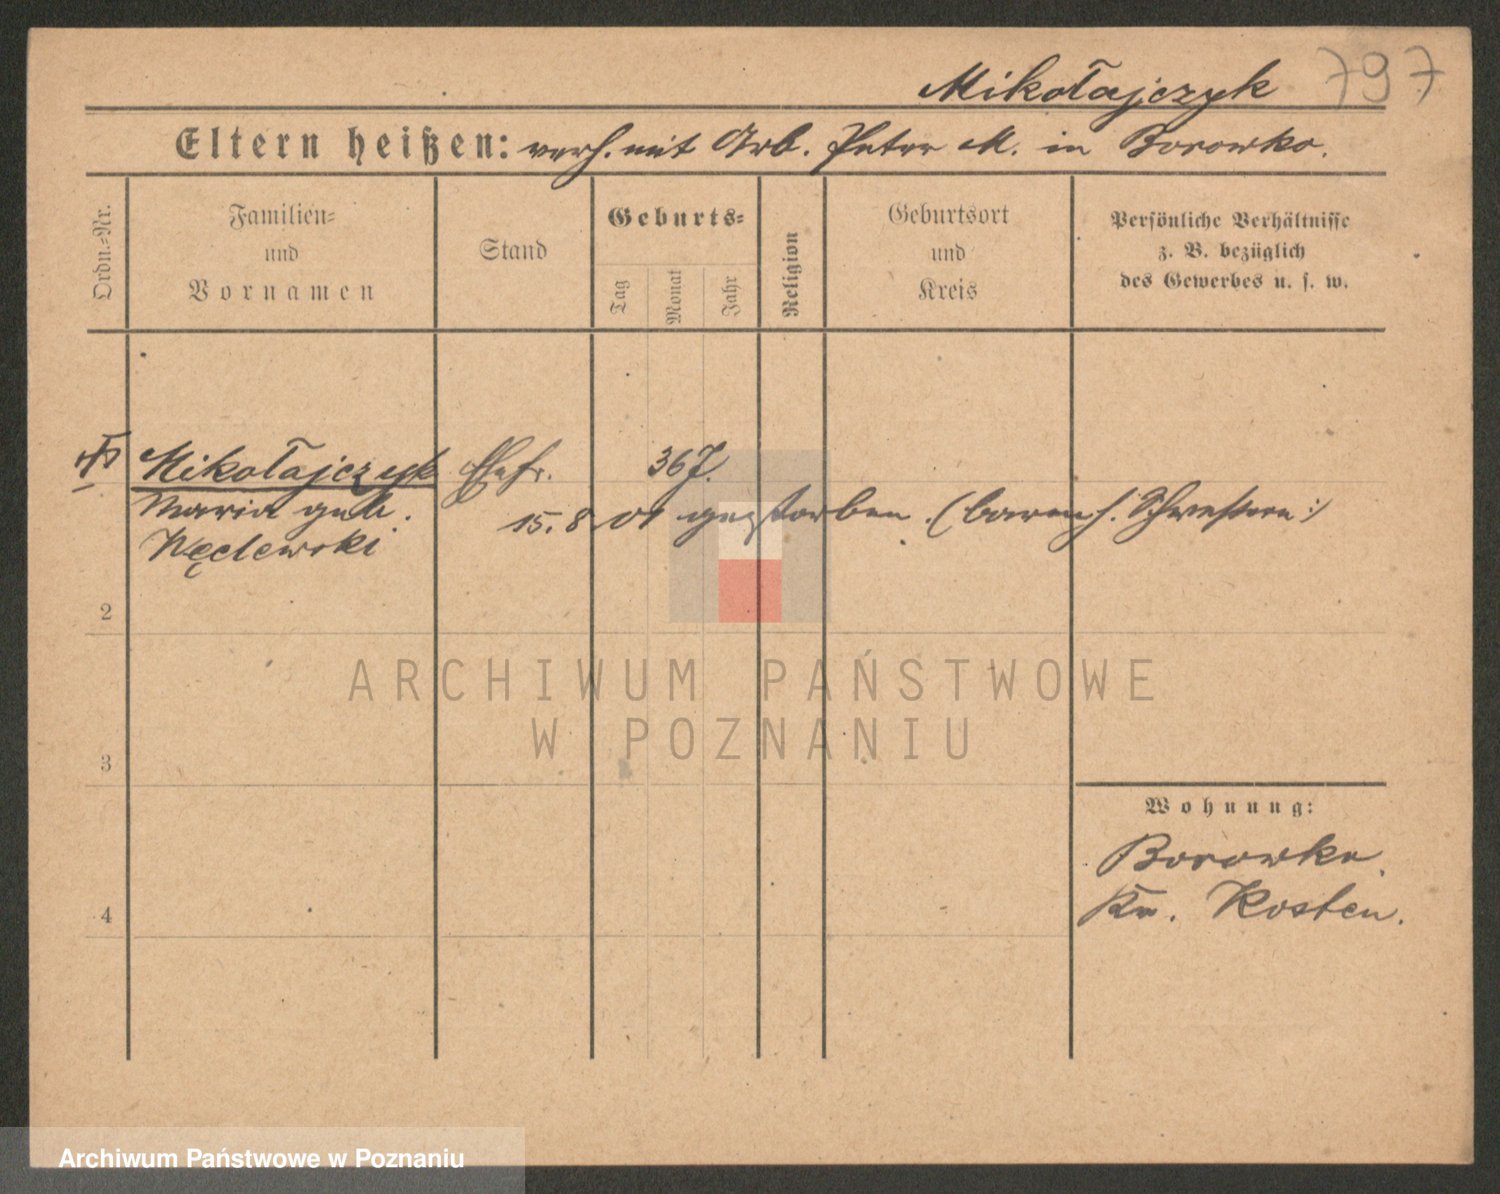 Mikołajczyk 797
Eltern heißen: verh. mit Arb. Peter M. in Borowko.
Ordn.-Nr.
Familien-
und
Vornamen
Stand
Geburts-
Tag
Monat
Jahr
Religion
Geburtsort
und
Kreis
Persönliche Verhältnisse
z. B. bezüglich
des Gewerbes u. s. w.
Mikołajczyk Ehefr. 36 J.
Maria geb.
15. 8 01 gestorben. (barmh. Schwestern:)
Węclewski
2
ARCHIWUM PAŃSTWOWE
W POZNANIU
3
Wohnung:
Borowko.
Kr. Kosten.
4
Archiwum Państwowe w Poznaniu